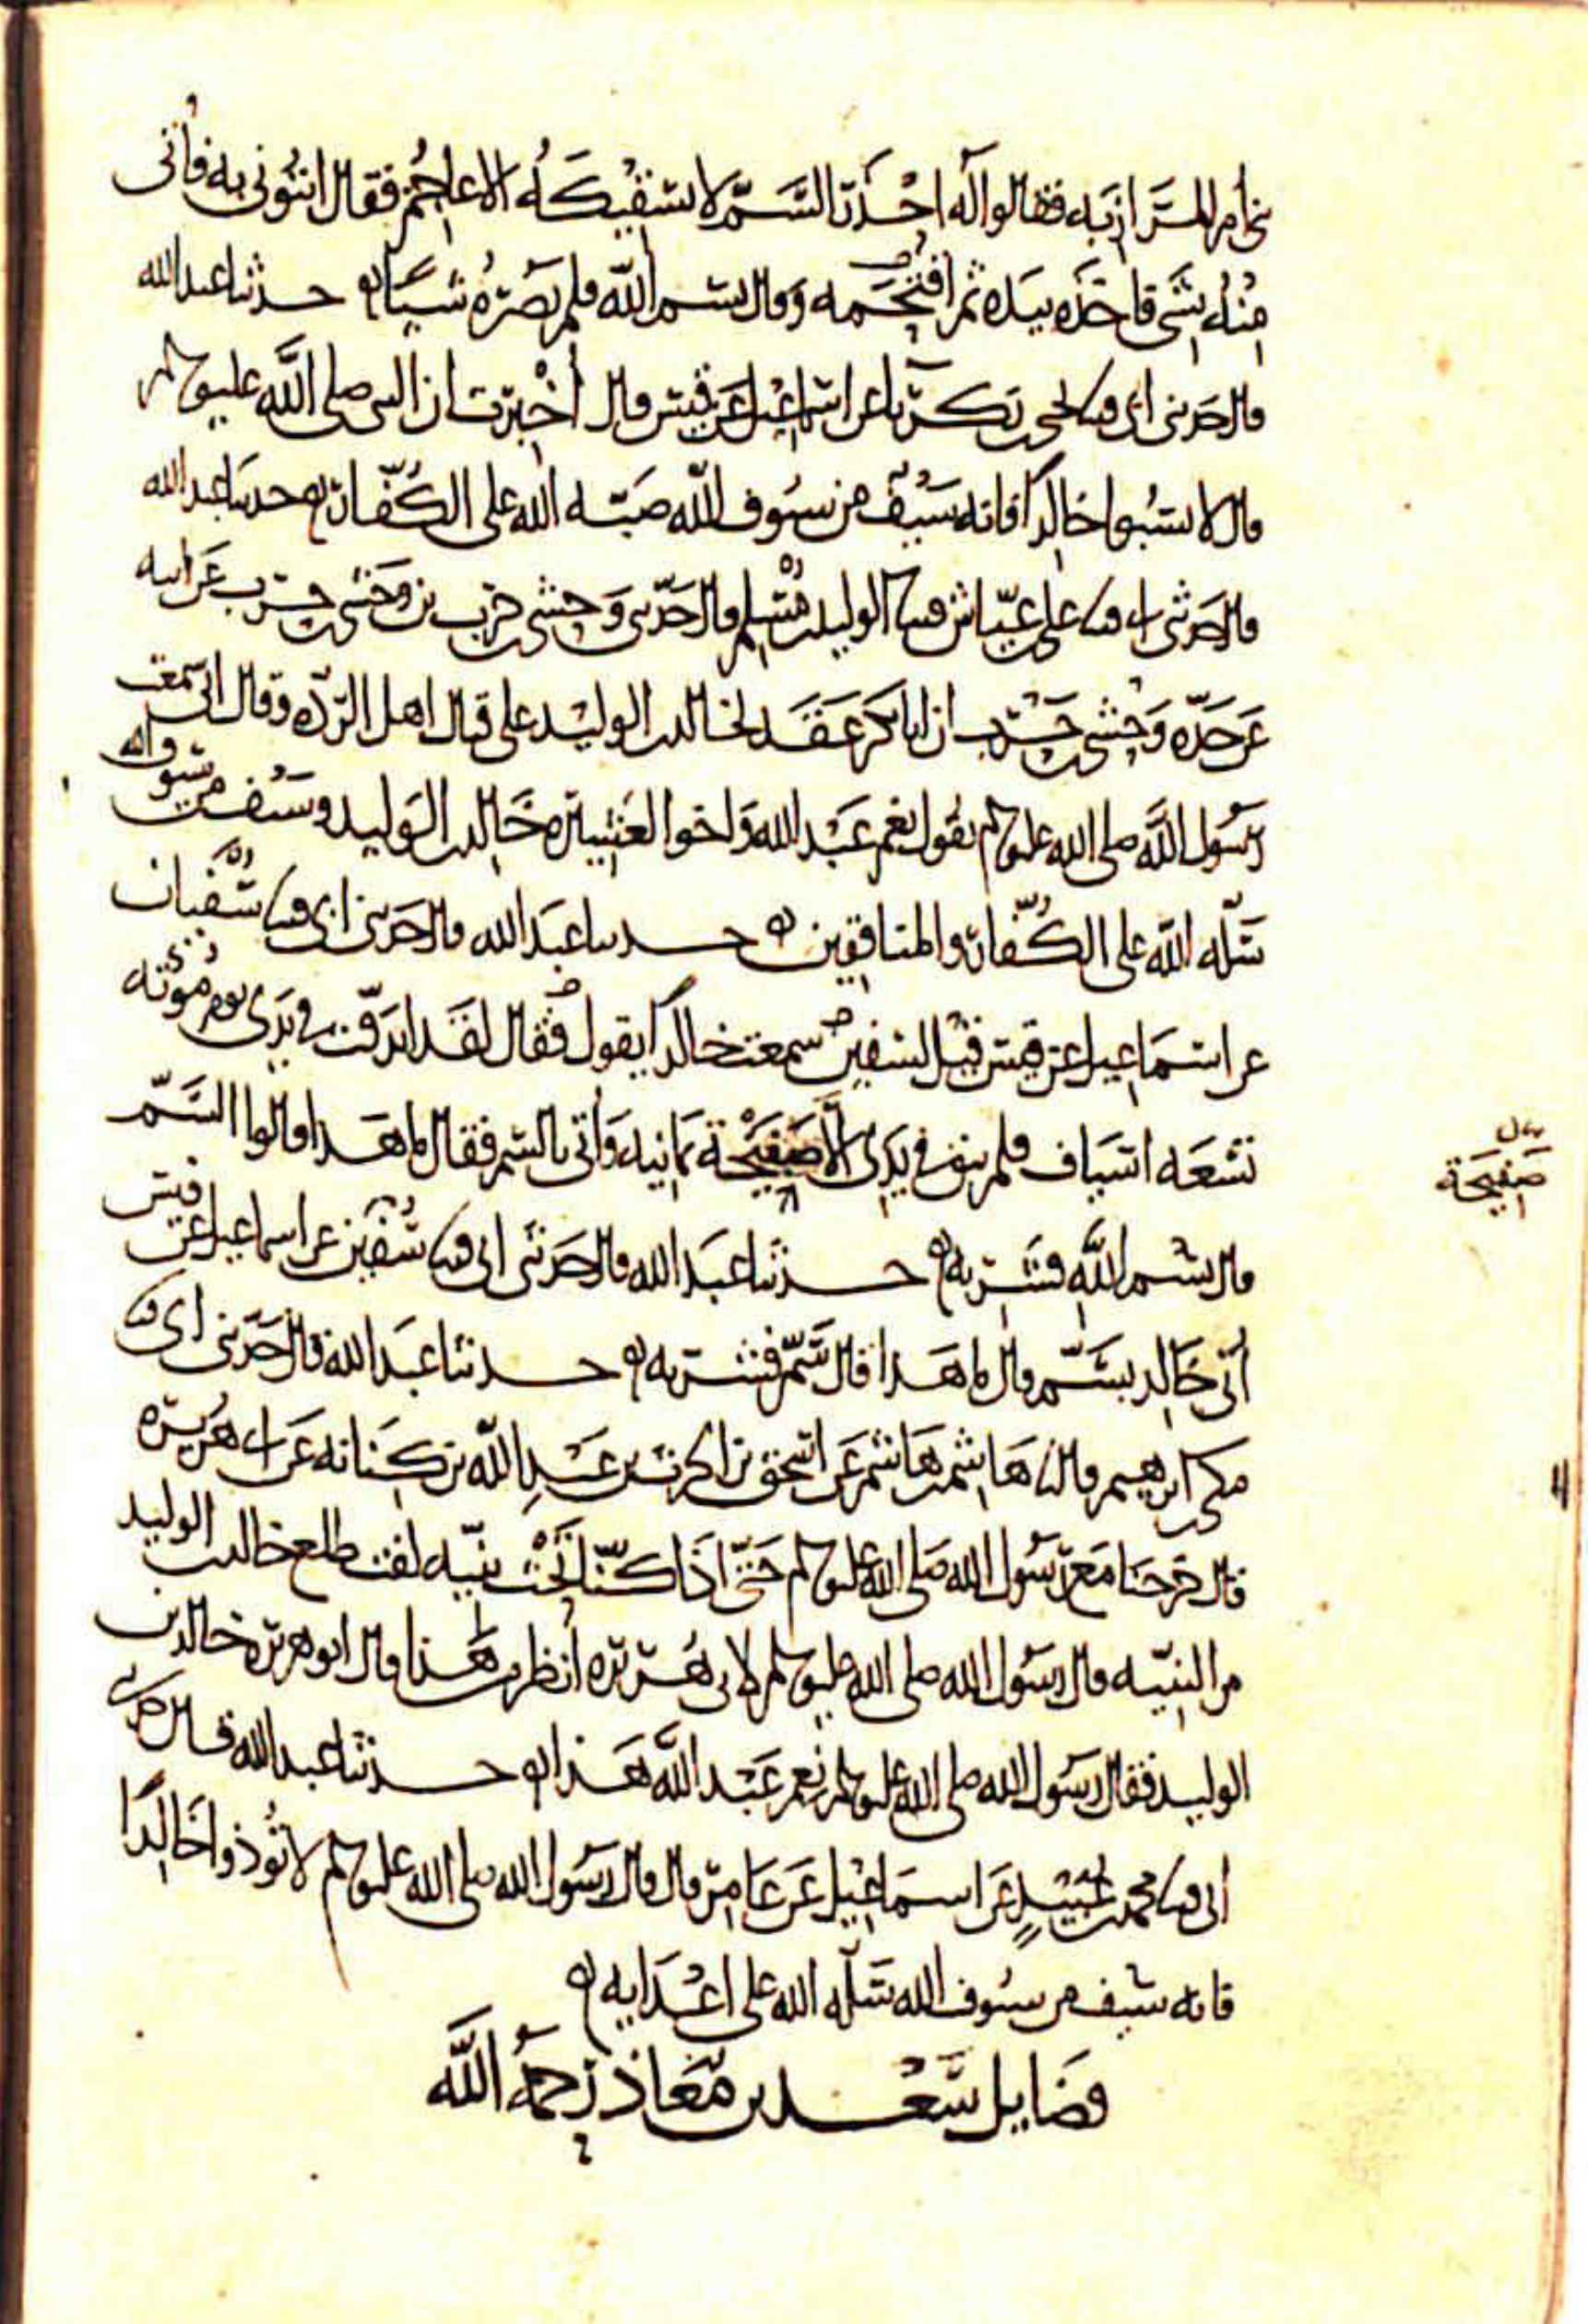 بني أم المرازبه فقالوا له احذر السم لا يسقيكه الاعاجم فقال ائتوني به فأتى
منه بشي فاخذه بيده ثم اقتحمه وقال بسم الله فلم يضره شيا ه حدثنا عبد الله
قال حدثنى ابى قثنا يحيى بن زكريا عن اسماعيل عن قيس قال أخبرت ان النبي صلى الله عليه وسلم
قال لا تسبوا خالدا فانه سيف من سيوف الله صبه الله على الكفار ه حدثنا عبد الله
قال حدثنى ابى قثنا على بن عياش قثنا الوليد بن مسلم قال حدثنى وحشى بن حرب بن وحشى بن حرب عن ابيه
عن جده وحشى بن حرب ان ابا بكر عقد لخالد بن الوليد على قتال اهل الردة وقال انى سمعت
رسول الله صلى الله عليه وسلم يقول نعم عبد الله واخوا العشيرة خالد بن الوليد وسيف من سيوف الله
سله الله على الكفار والمنافقين ه حدثنا عبد الله قال حدثنى ابى قثنا سفيان
عن اسماعيل عن قيس قيل لسفين سمعت خالدا يقول فقال لقد اندقت في يدى يوم مؤته
تسعه اسياف فلم يبق في يدى الا صفيحة يمانيه وأتى بالسم فقال ما هذا قالوا السم
قال بسم الله فشربه ه حدثنا عبد الله قال حدثنى ابى قثنا سفين عن اسماعيل عن قيس
أتى خالد بسم قال ما هذا قال سم فشربه ه حدثنا عبد الله قال حدثنى ابى قثنا
مكى بن ابرهيم قال ثنا هاشم بن هاشم عن اسحق بن الحرث بن عبد الله بن كنانه عن ابى هريرة
قال خرجنا مع رسول الله صلى الله عليه وسلم حتى اذا كنا تحت ثنيه لفت طلع خالد بن الوليد
من الثنيه قال رسول الله صلى الله عليه وسلم لابى هريره انظر من هذا قال ابو هريرة خالد بن
الوليد فقال رسول الله صلى الله عليه وسلم نعم عبد الله هذا ه حدثنا عبد الله قال حدثنى
ابى قثنا محمد بن عبيد عن اسماعيل عن عامر قال قال رسول الله صلى الله عليه وسلم لا تؤذوا خالدا
فانه سيف من سيوف الله سله الله على اعدايه ه
فضايل سعد بن معاذ رحمه الله
صفيحة